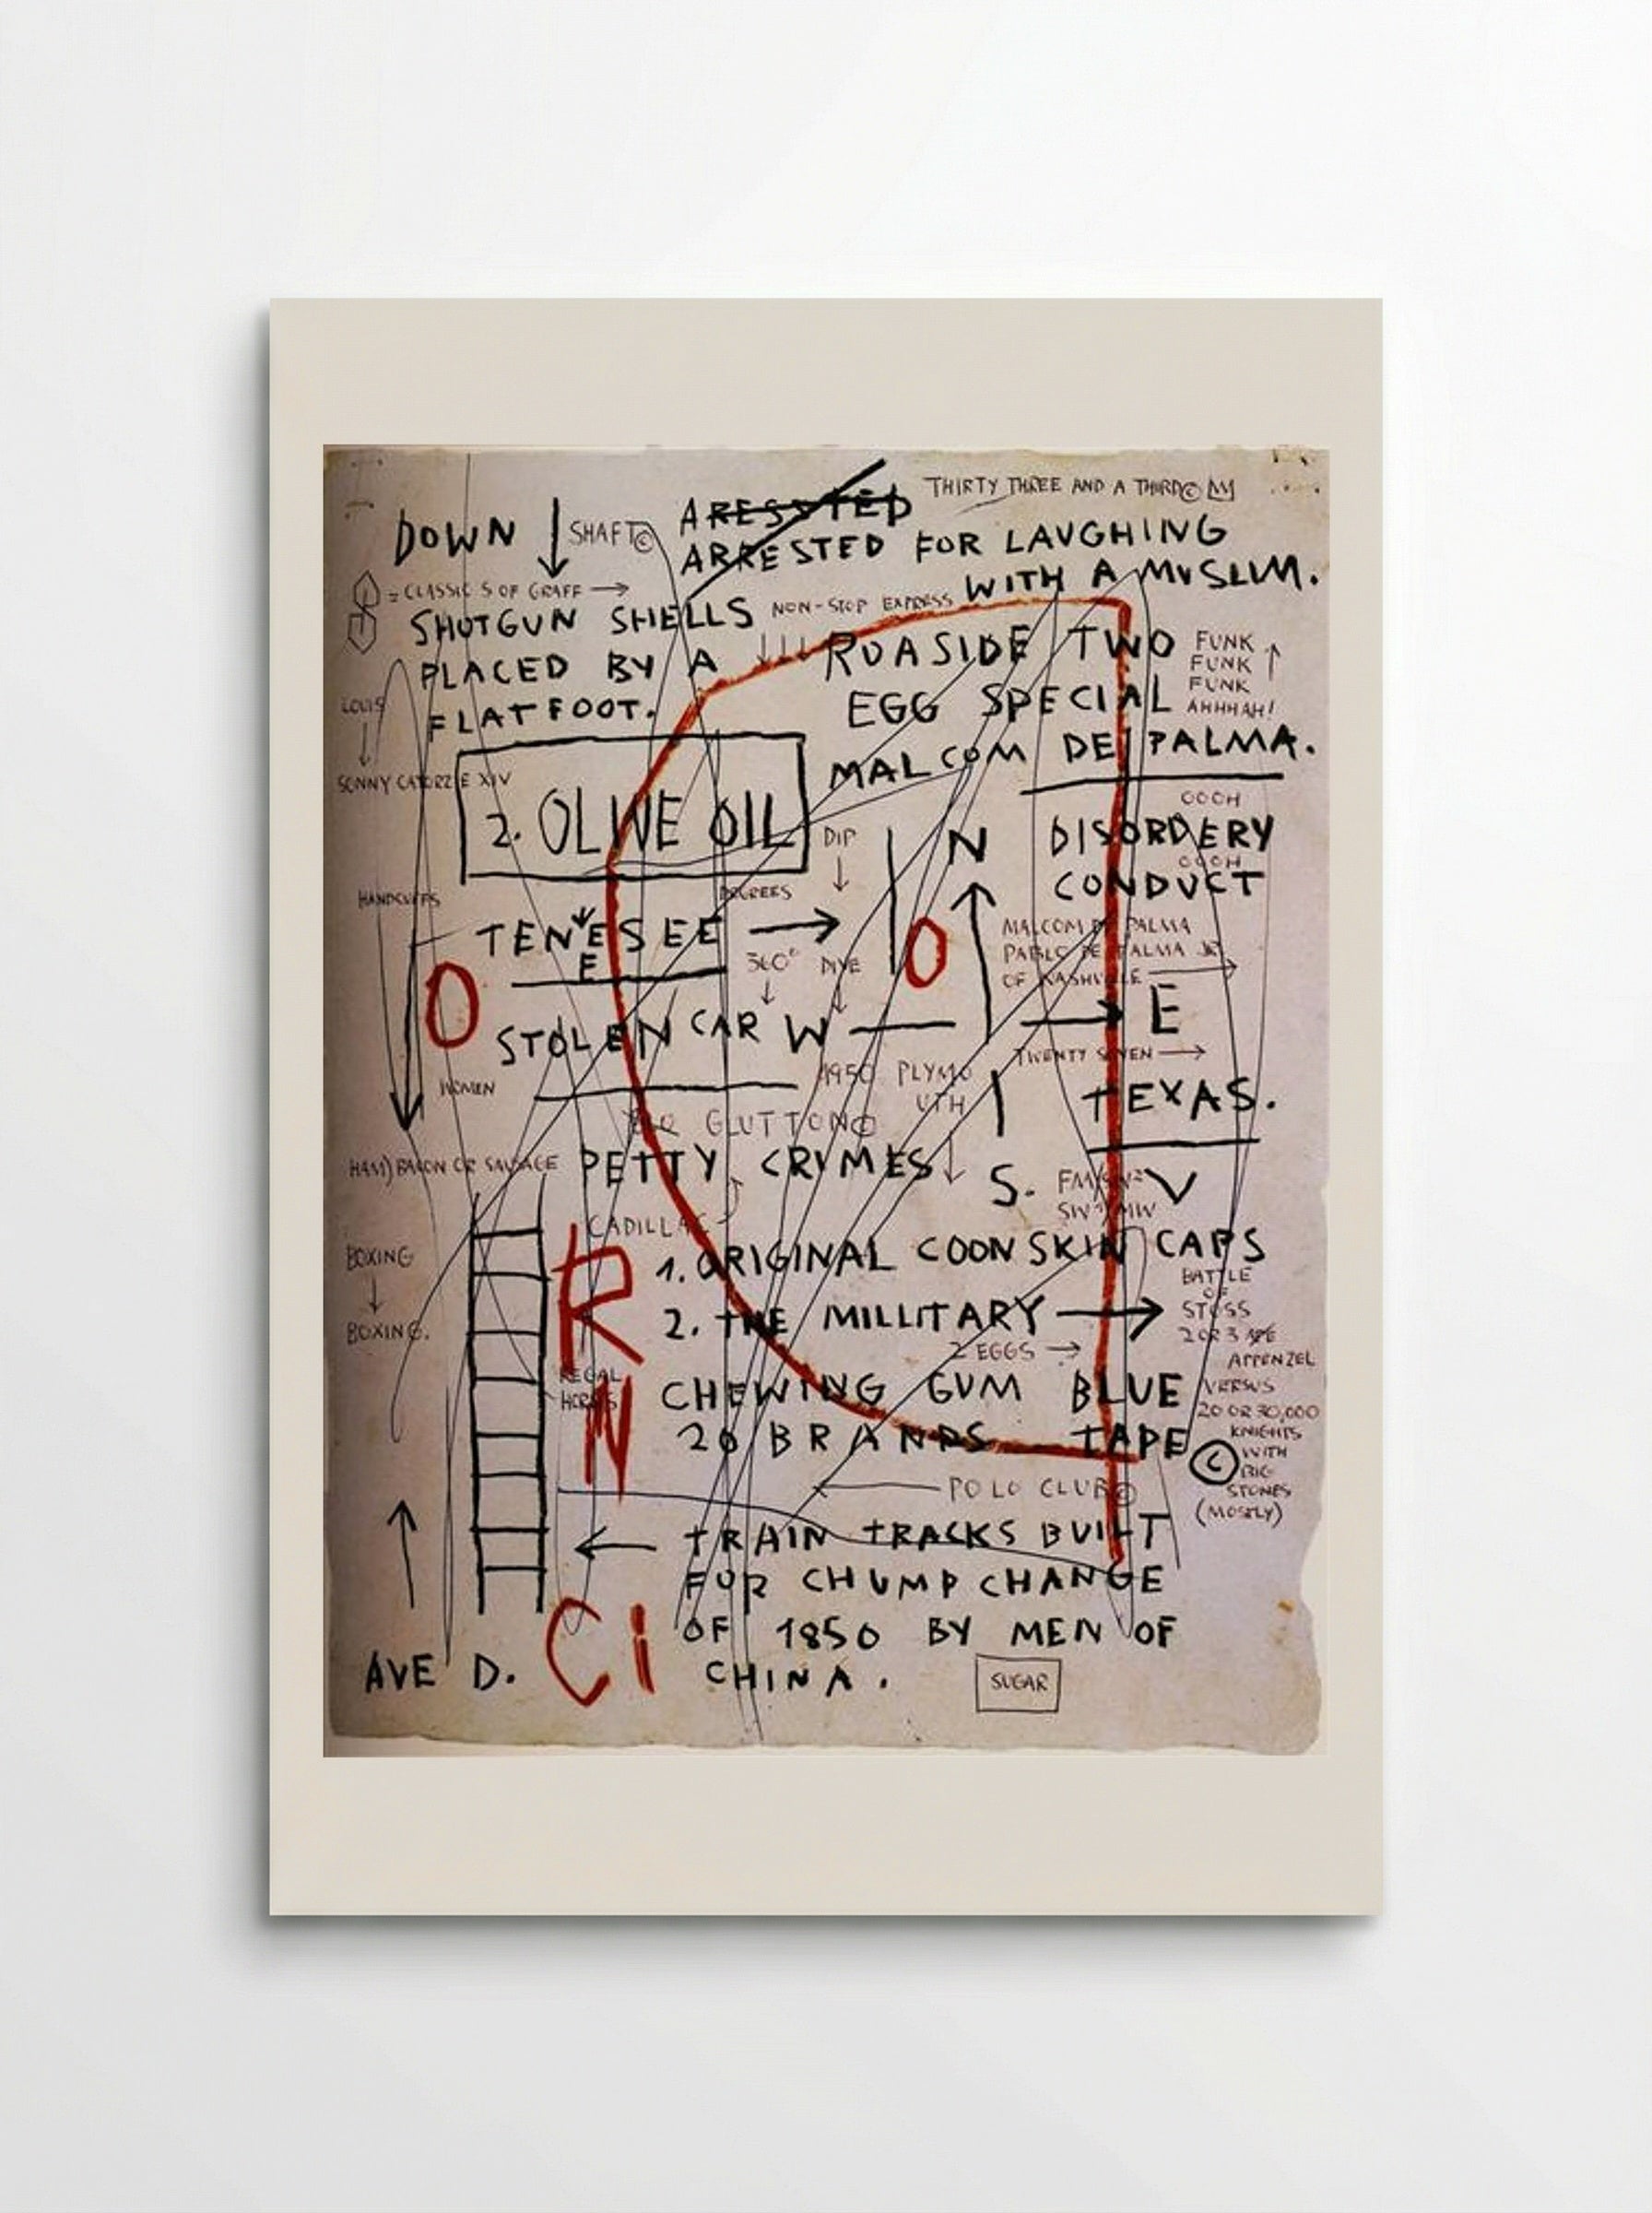 THIRTY THREE AND A THIRD©
DOWN
SHAFT©
ARESSTED
ARRESTED FOR LAUGHING
WITH A MUSLIM.
= CLASSIC S OF GRAFF →
SHOTGUN SHELLS
NON-STOP EXPRESS
PLACED BY A
FLATFOOT.
ROASIDE TWO
EGG SPECIAL
MALCOM DE PALMA.
FUNK
FUNK
FUNK
AHHHAH!
LOUIS
SONNY CATORZE XIV
2. OLIVE OIL
DIP
N
OOOH
DISORDERY
OOOH
CONDUCT
HANDCUFFS
DEGREES
TENESEE
E
→
O
360°
DIVE
MALCOM DE PALMA
PABLO DE PALMA JR
OF NASHVILLE
O
STOLEN CAR
W
E
TWENTY SEVEN →
WOMEN
1950 PLYMO
UTH
TEXAS.
GLUTTON©
HAM) BACON OR SAUSAGE
PETTY CRIMES
S.
V
CADILLAC
BOXING
BOXING.
R
N
REGAL
1. ORIGINAL COONSKIN CAPS
2. THE MILLITARY →
2 EGGS →
CHEWING GUM BLUE
20 BRANDS TAPE
©
BATTLE
OF
STOSS
2 OR 3
APPENZEL
VERSUS
20 OR 30,000
KNIGHTS
WITH
BIG
STONES
(MOSTLY)
POLO CLUB©
← TRAIN TRACKS BUILT
FOR CHUMP CHANGE
OF 1850 BY MEN OF
CHINA.
AVE D.
Ci
SUGAR